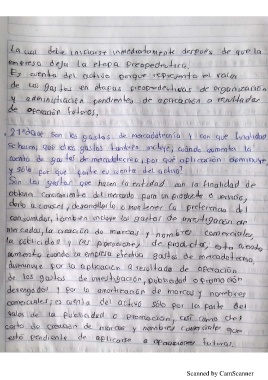 La cual debe iniciarse inmediatamente después de que la
empresa deja la etapa preoperativa.
Es cuenta del activo porque representa el valor
de los gastos en etapas preoperativas de organización
y administración pendientes de aplicación a resultados
de operación futuros.
21- Que son los gastos de mercadotecnia y con que finalidad
se hacen, que otros gastos también incluye, cuándo aumenta la
cuenta de gastos de mercadotecnia, por qué aplicación disminuye,
y sólo por que parte es cuenta del activo?
Son los gastos que hacen la entidad con la finalidad de
obtener conocimiento del mercado para un producto o servicio,
darlo a conocer, desarrollarlo o mantener la preferencia del
consumidor, también incluye los gastos de investigación de
mercados, la creación de marcas y nombres comerciales
la publicidad y las promociones de productos, esta cuenta
aumenta cuando la empresa efectúa gastos de mercadotecnia,
disminuye por la aplicación a resultados de operación
de los gastos de investigación, publicidad o promoción
devengados y por la amortización de marcas y nombres
comerciales; es cuenta del activo sólo por la parte del
valor de la publicidad o promoción, así como del
costo de creación de marcas y nombres comerciales que
esté pendiente de aplicarse a operaciones futuras.
Scanned by CamScanner